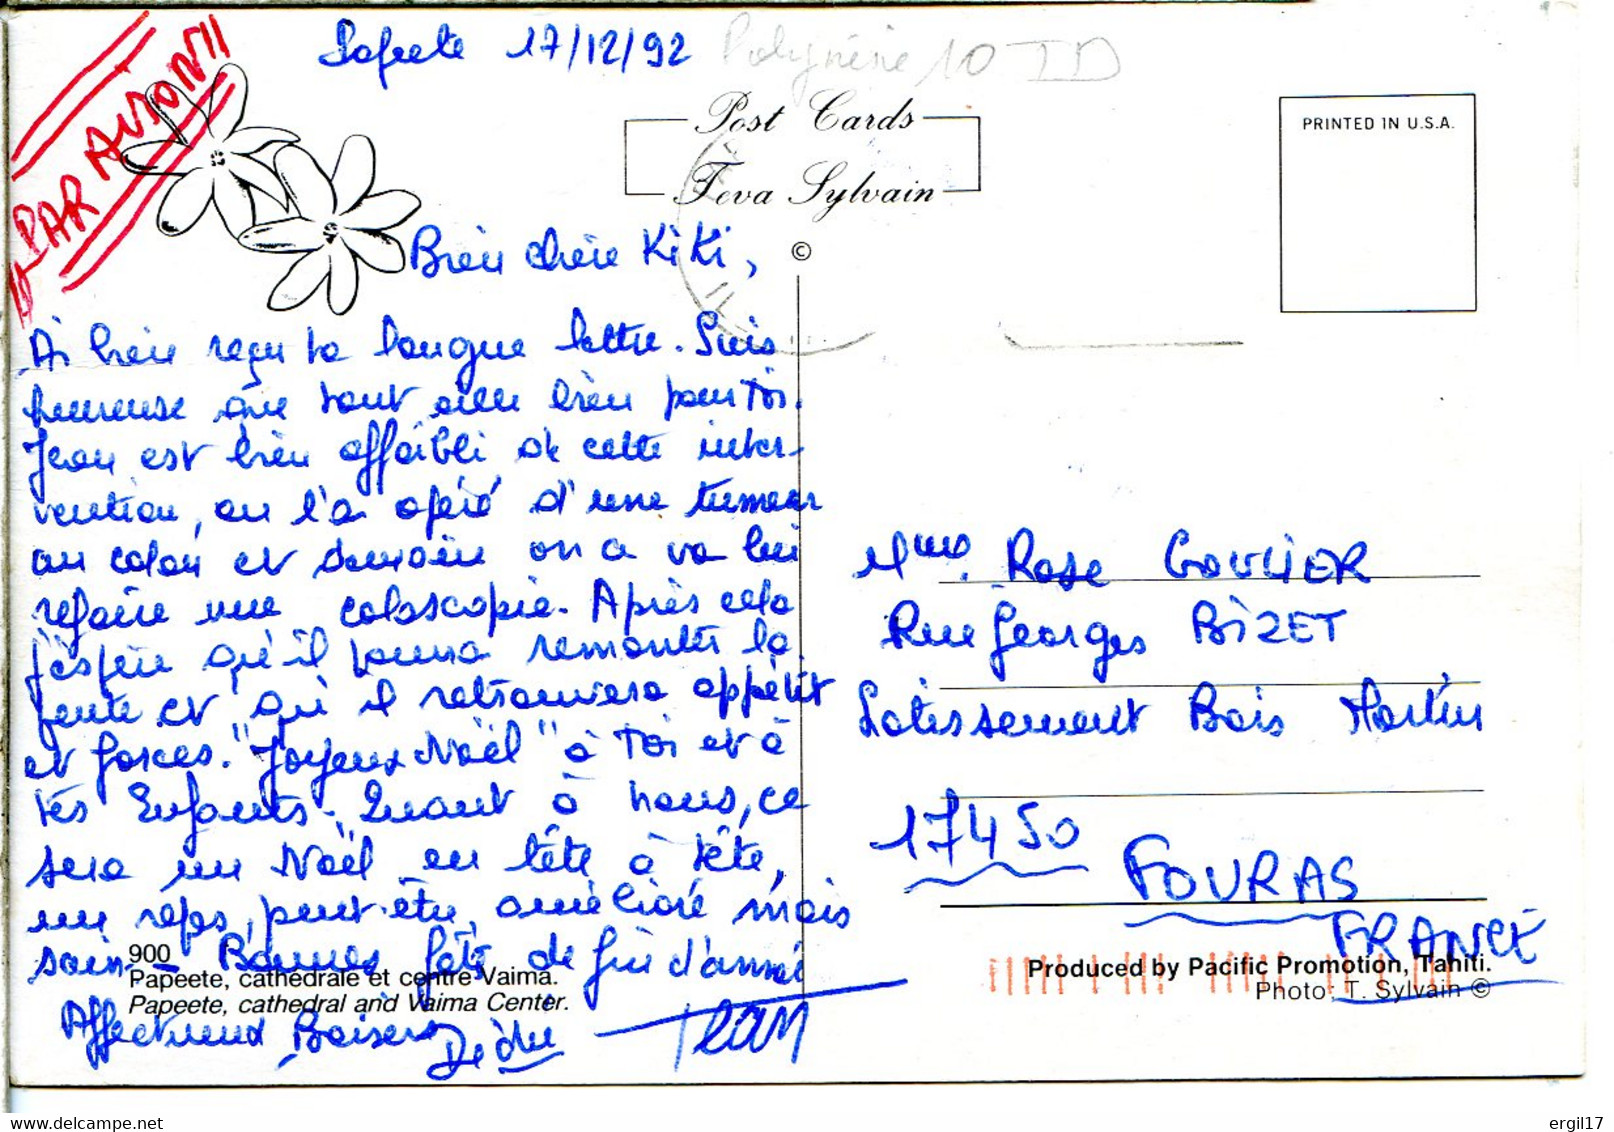 "PAR AVION"
Papeete 17/12/92
Polynésie 10 TD
Post Cards
Teva Sylvain
©
PRINTED IN U.S.A.
Bien chère KiKi,
Ai bien reçu ta longue lettre. Suis
heureuse que tout aille bien pour Toi.
Jean est bien affaibli de cette inter-
vention, on l'a opéré d'une tumeur
au colon et demain on a va lui
refaire une coloscopie. Après cela
j'espère qu'il pourra remonter la
pente et qu'il retrouvera appétit
et forces. "Joyeux Noël" à Toi et à
tes Enfants. Quant à nous, ce
sera un Noël en tête à tête,
un repas, peut-être, amélioré mais
sain. – Bonnes fêtes de fin d'année
Affectueux Baisers
Dédée Jean
900
Papeete, cathédrale et centre Vaima.
Papeete, cathedral and Vaima Center.
Mme Rose GOULIER
Rue Georges BIZET
Lotissement Bois Martin
17450
FOURAS
FRANCE
Produced by Pacific Promotion, Tahiti.
Photo: T. Sylvain ©
ergil17